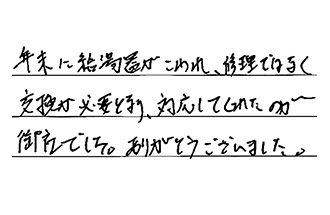 年末に給湯器がこわれ、修理ではなく
交換が必要となり、対応してくれたのが
御社でした。ありがとうございました。